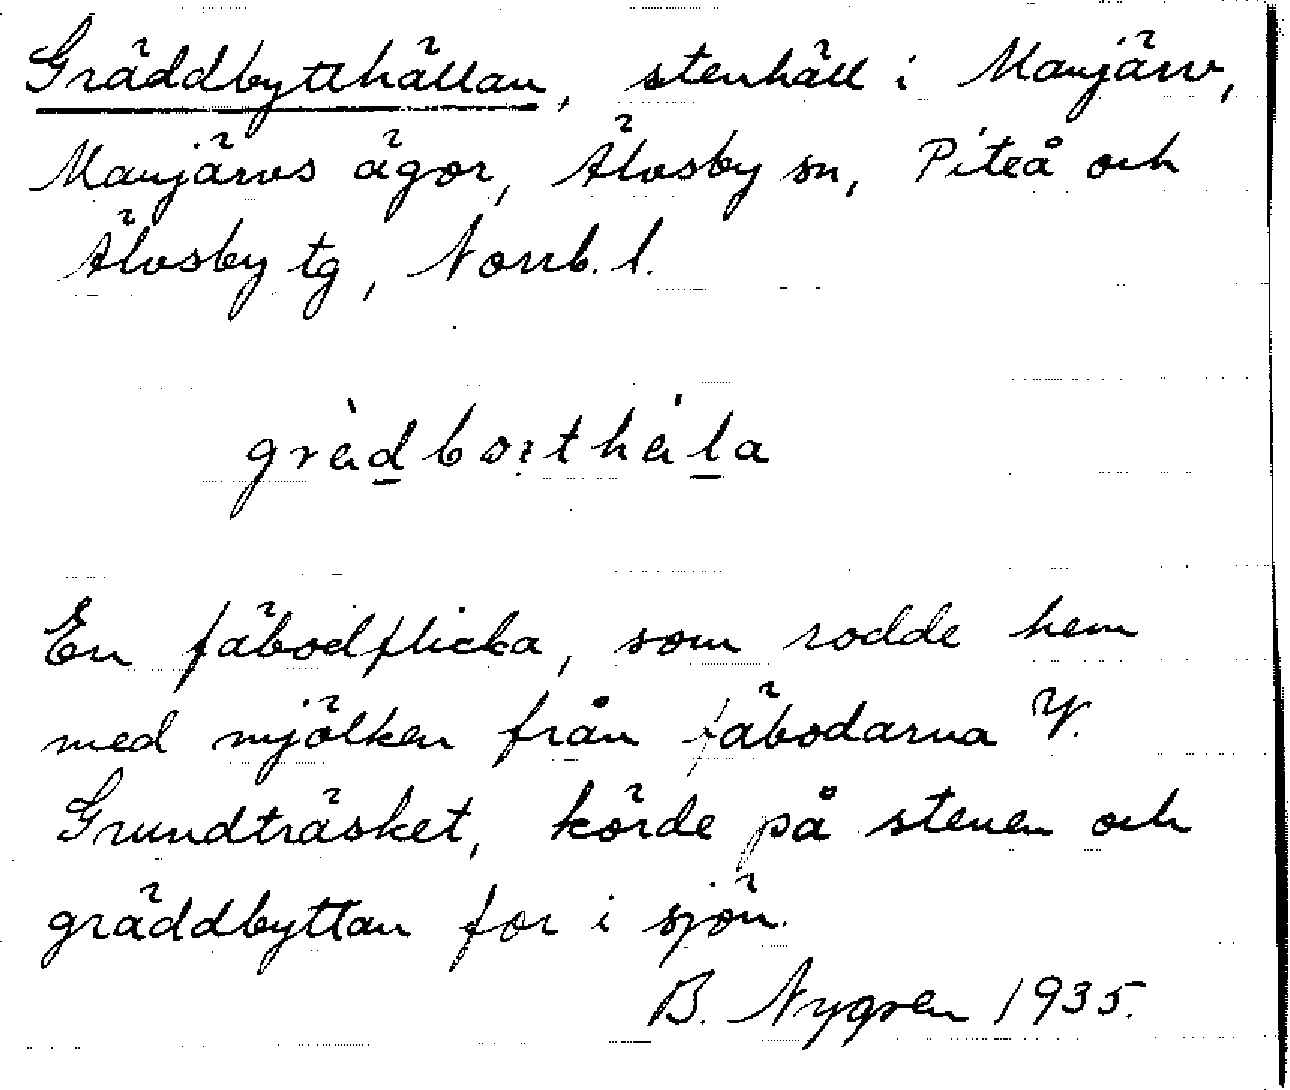 Gräddbytthällan, stenhäll i Manjärv,
Manjärvs ägor, Älvsby sn, Piteå och
Älvsby tg, Norrb. l.
En fäbodflicka, som rodde hem
med mjölken från fäbodarna V.
Grundträsket, körde på stenen och
gräddbyttan for i sjön.
B. Nygren 1935.